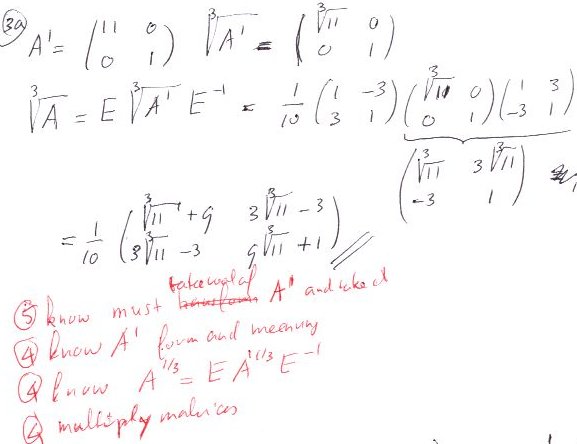 3a
A' = ( 11 0 ; 0 1 ) ∛A' = ( ∛11 0 ; 0 1 )
∛A = E ∛A' E⁻¹ = 1/10 ( 1 -3 ; 3 1 ) ( ∛11 0 ; 0 1 ) ( 1 3 ; -3 1 )
( ∛11 3∛11 ; -3 1 )
= 1/10 ( ∛11 + 9 3∛11 - 3 ; 3∛11 - 3 9∛11 + 1 )
⑤ know must A' and take it
④ know A' form and meening
④ know A^1/3 = E A'^1/3 E⁻¹
multiply matrices